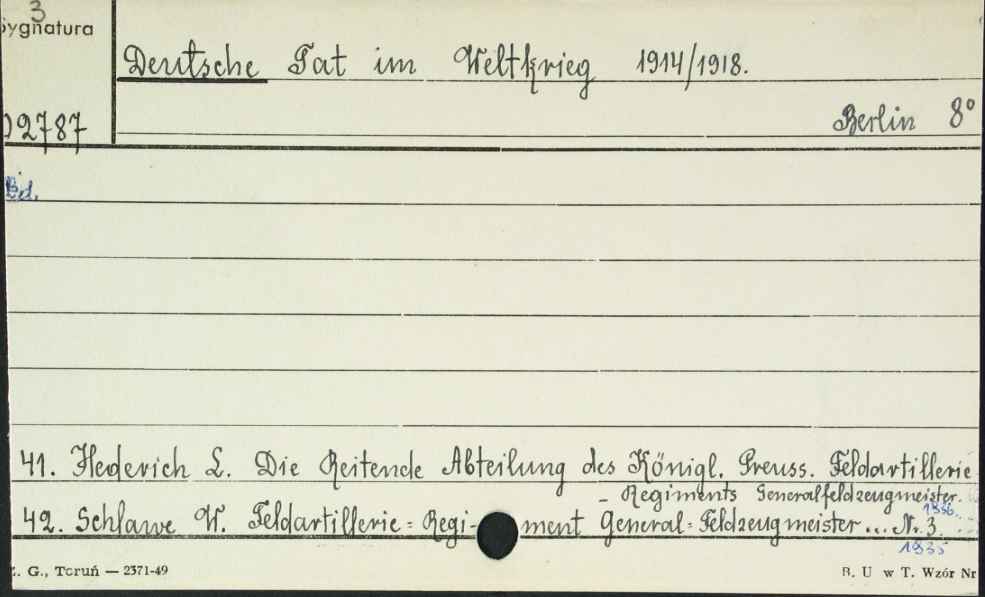 3
Sygnatura
Deutsche Tat im Weltkrieg 1914/1918.
Berlin 8°
02787
Bd.
41. Hederich L. Die Reitende Abteilung des Königl. Preuss. Feldartillerie
- Regiments Generalfeldzeugmeister.
1936.
42. Schlawe W. Feldartillerie=Regi- ment General=Feldzeugmeister... Nr. 3.
1935
Z. G., Toruń — 2371-49
B. U w T. Wzór Nr